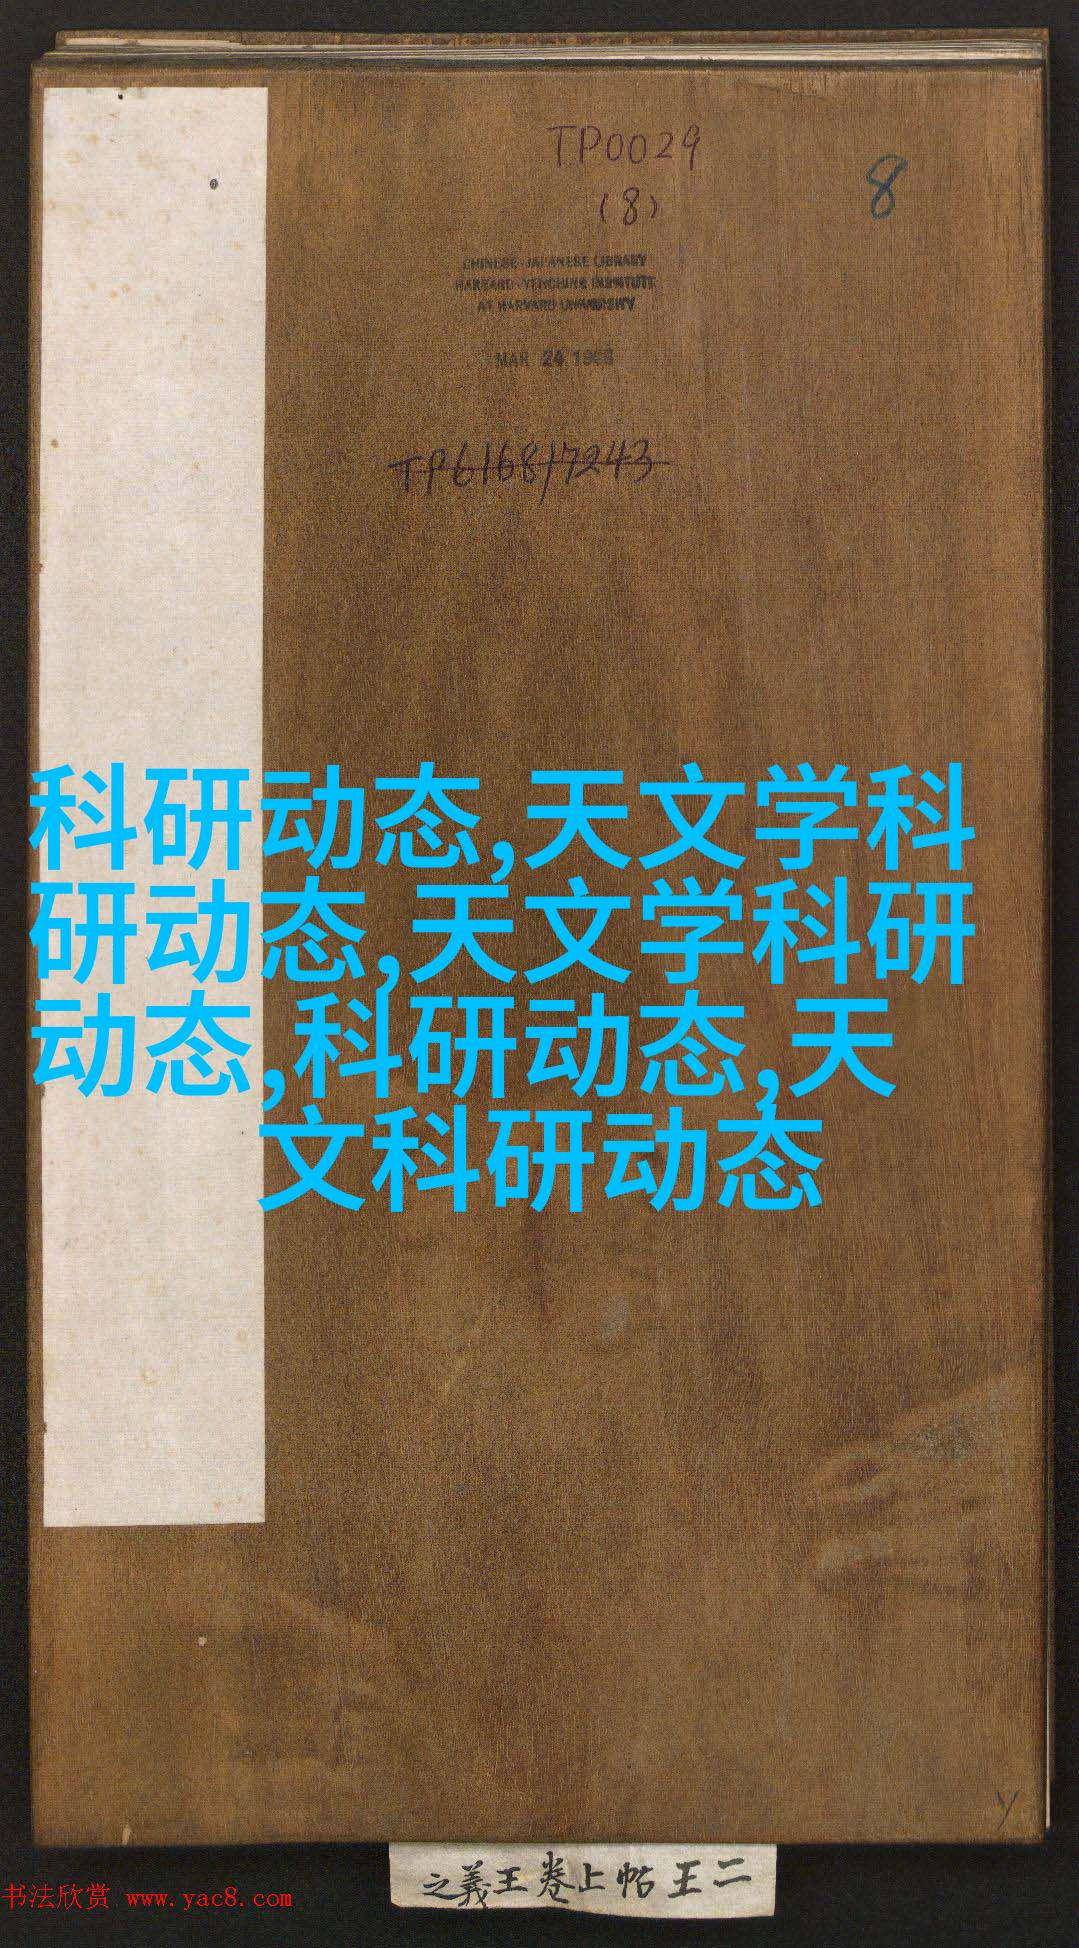 TP0029
(8)
8
CHINESE-JAPANESE LIBRARY
HARVARD-YENCHING INSTITUTE
AT HARVARD UNIVERSITY
MAR 24 19
TP6168/7243
科研动态,天文学科
研动态,天文学科研
动态,科研动态,天
文科研动态
y
二王帖上卷王羲之
书法欣赏 www.yac8.com